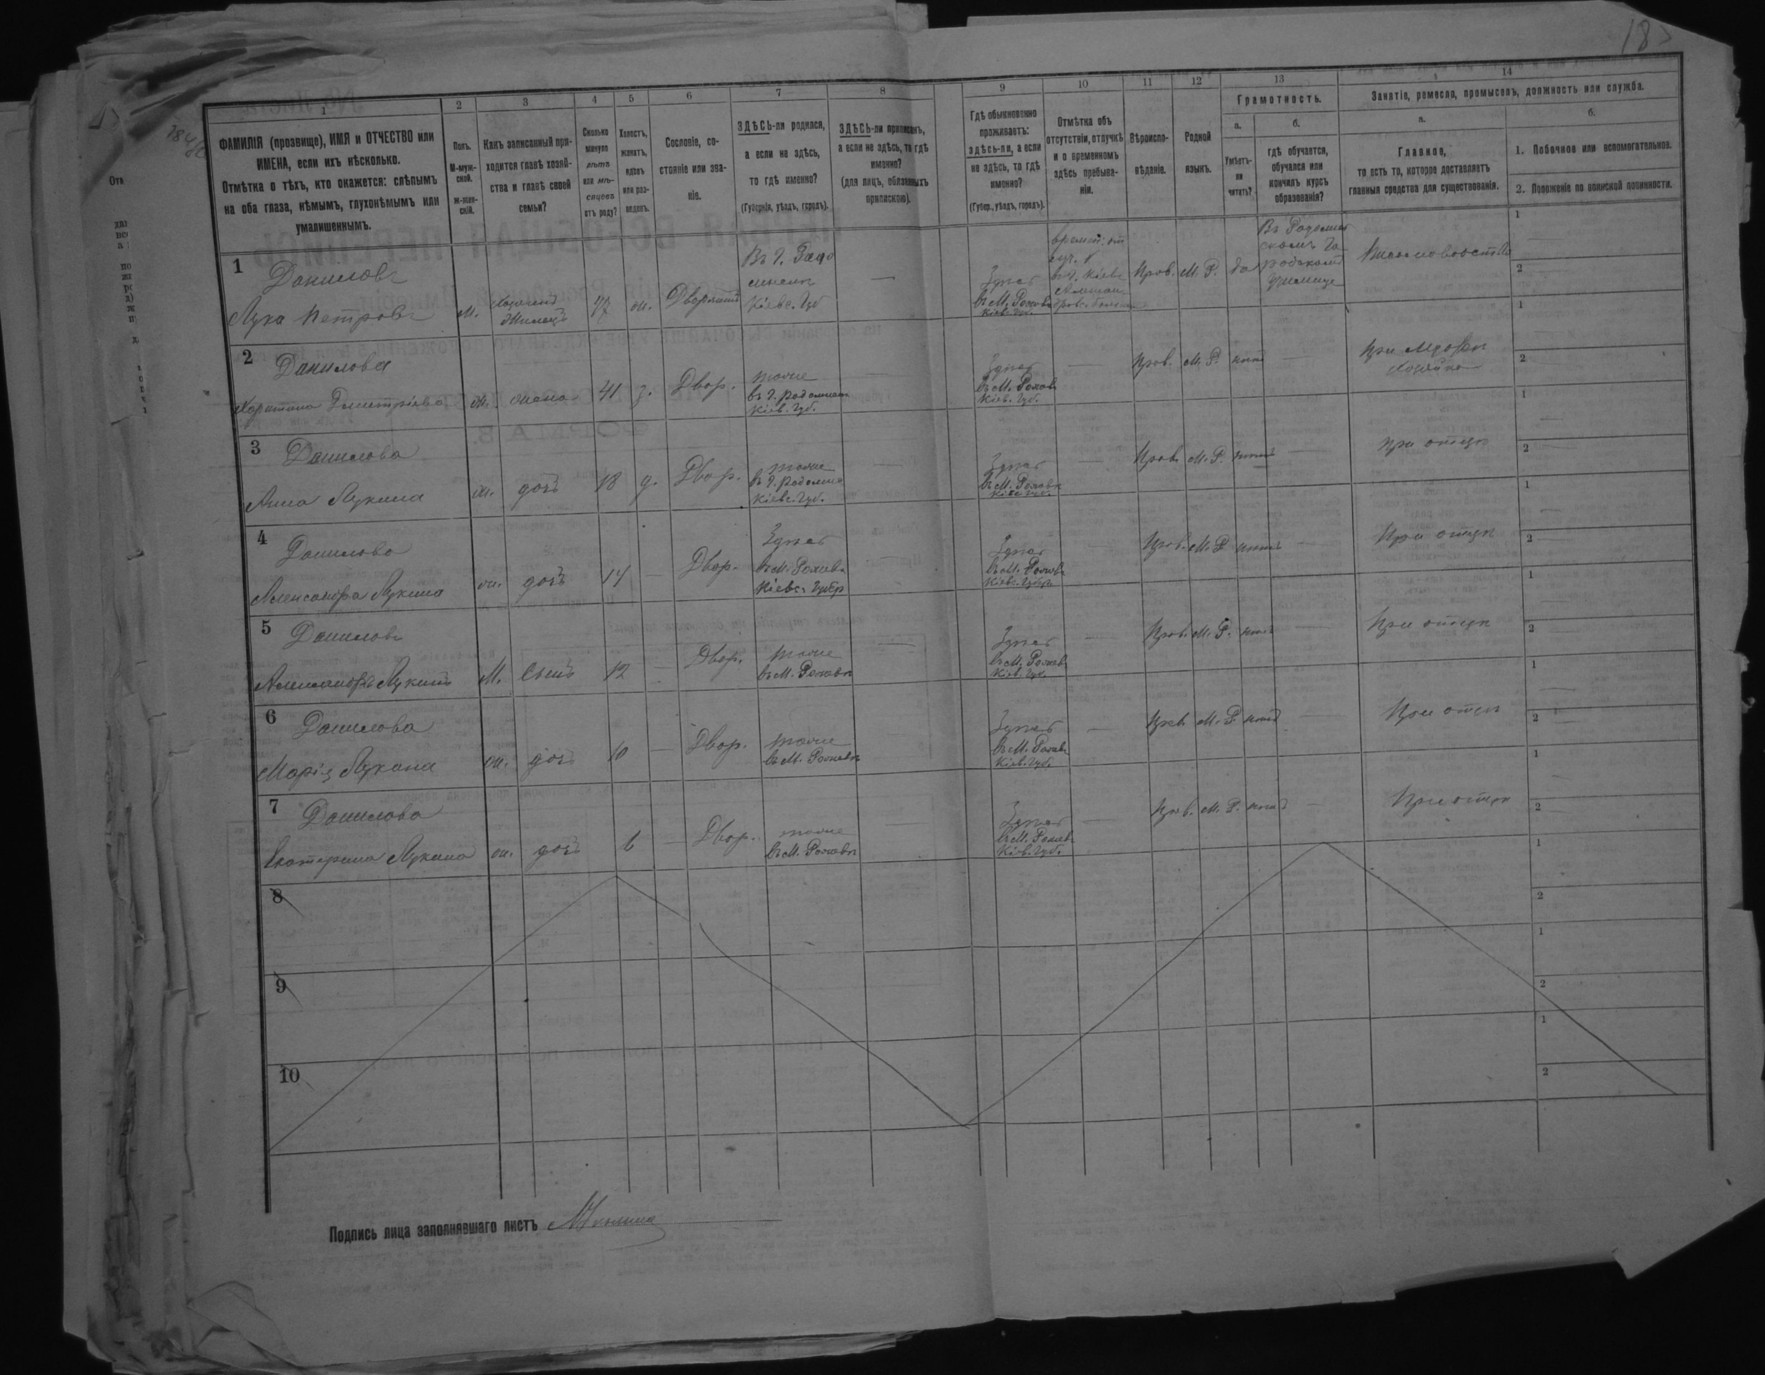 183
1
2
3
4
5
6
7
8
9
10
11
12
13
14
ФАМИЛІЯ (прозвище), ИМЯ и ОТЧЕСТВО или
ИМЕНА, если ихъ нѣсколько.
Отмѣтка о тѣхъ, кто окажется: слѣпымъ
на оба глаза, нѣмымъ, глухонѣмымъ или
умалишеннымъ.
Полъ.
М-муж-
ской.
ж-жен-
скій.
Какъ записанный при-
ходится главѣ хозяй-
ства и главѣ своей
семьи?
Сколько
минуло
лѣтъ
или мѣ-
сяцевъ
отъ роду?
Холостъ,
женатъ,
вдовъ
или раз-
веденъ.
Сословіе, со-
стояніе или зва-
ніе.
ЗДѢСЬ-ли родился,
а если не здѣсь,
то гдѣ именно?
(Губернія, уѣздъ, городъ).
ЗДѢСЬ-ли приписанъ,
а если не здѣсь, то гдѣ
именно?
(для лицъ, обязанныхъ
припискою).
Гдѣ обыкновенно
проживаетъ:
здѣсь-ли, а если
не здѣсь, то гдѣ
именно?
(Губер., уѣздъ, городъ).
Отмѣтка объ
отсутствіи, отлучкѣ
и о временномъ
здѣсь пребыва-
ніи.
Вѣроиспо-
вѣданіе.
Родной
языкъ.
Грамотность.
а.
Умѣетъ-
ли
читать?
б.
гдѣ обучается,
обучался или
кончилъ курсъ
образованія?
Занятіе, ремесло, промыселъ, должность или служба.
а.
Главное,
то есть то, которое доставляетъ
главныя средства для существованія.
б.
1. Побочное или вспомогательное.
2. Положеніе по воинской повинности.
1
Даниловъ
Лука Петровъ
м.
Дворянинъ
Въ г. Радо
мыслѣ
Кіевс. Губ
Здѣсь
въ М. Рожевѣ
Кіев. Губ.
въ г. Кіевѣ
Прав.
М. Р.
да
1
2
2
Данилова
ж.
жена
41
з.
Двор.
тоже
въ г. Радомыслѣ
Кіев. Губ.
Здѣсь
въ М. Рожевѣ
Кіев. Губ.
Прав.
М. Р.
нѣтъ
при мужѣ
1
2
3
Данилова
Анна Лукина
ж.
дочь
18
д.
Двор.
тоже
въ г. Радомыслѣ
Кіевс. Губ.
Здѣсь
въ М. Рожевѣ
Кіев. Губ.
Прав.
М. Р.
нѣтъ
при отцѣ
1
2
4
Данилова
Александра Лукина
ж.
дочь
14
Двор.
Здѣсь
въ М. Рожевѣ
Кіевс. Губер
Здѣсь
въ М. Рожевѣ
Кіевс. Губер
Прав.
М. Р.
нѣтъ
При отцѣ
1
2
5
Даниловъ
Александръ Лукинъ
М.
Сынъ
12
Двор.
тоже
въ М. Рожевѣ
Здѣсь
въ М. Рожевѣ
Кіев. Губ.
Прав.
М. Р.
нѣтъ
При отцѣ
1
2
6
Данилова
Марія Лукина
ж.
дочь
10
Двор.
тоже
въ М. Рожевѣ
Здѣсь
въ М. Рожевѣ
Кіев. Губ.
Прав
М. Р.
нѣтъ
При отцѣ
1
2
7
Данилова
Екатерина Лукина
ж.
дочь
6
Двор.
тоже
въ М. Рожевѣ
Здѣсь
въ М. Рожевѣ
Кіев. Губ.
Прав.
М. Р.
нѣтъ
При отцѣ
1
2
8
1
2
9
1
2
10
1
2
Подпись лица заполнявшаго листъ